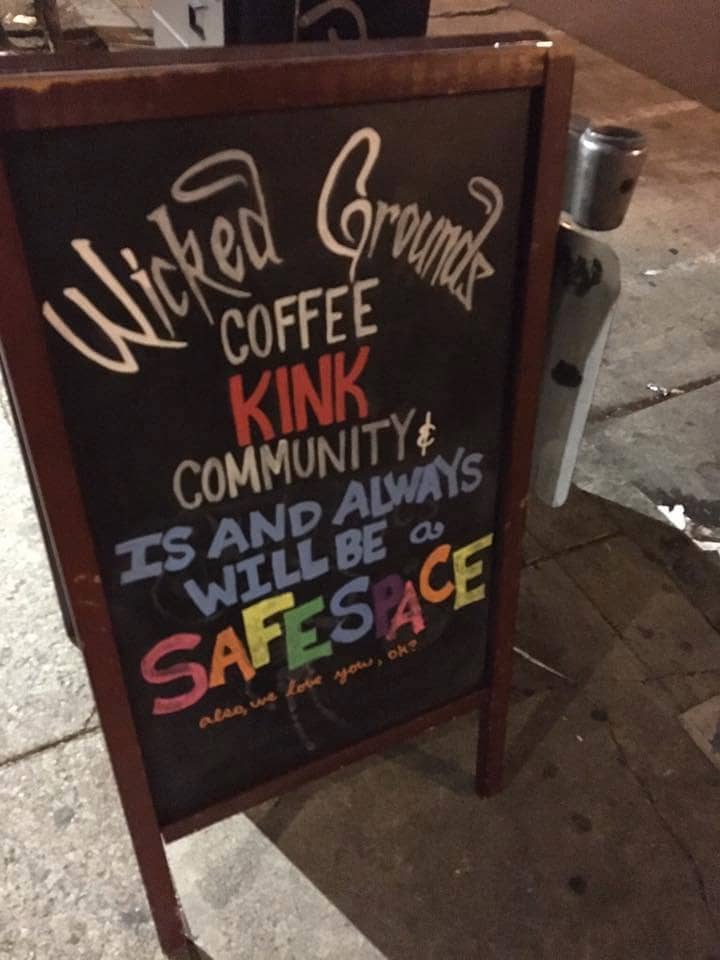 Wicked Grounds
COFFEE
KINK
COMMUNITY &
IS AND ALWAYS
WILL BE a
SAFE SPACE
also, we love you, ok?